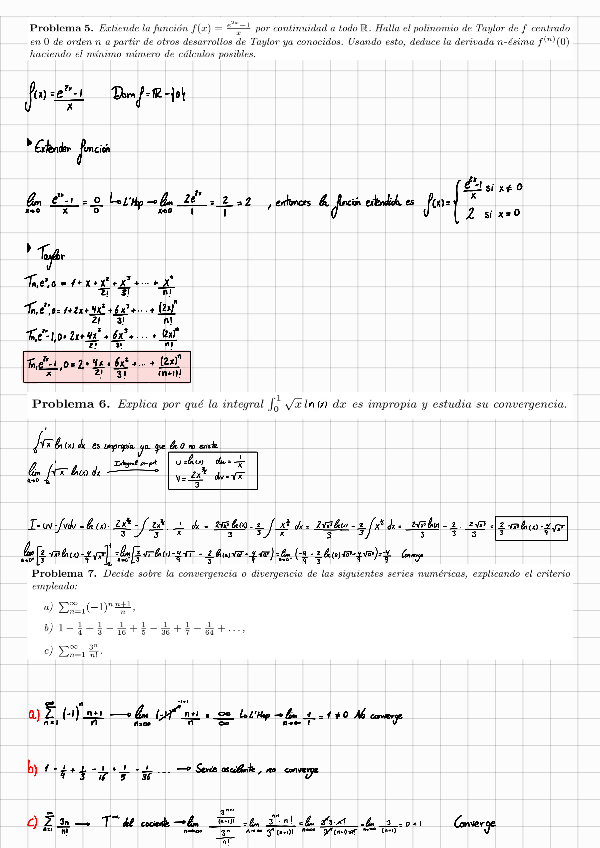 Problema 5. Extiende la función f(x) = \frac{e^{2x}-1}{x} por continuidad a todo ℝ. Halla el polinomio de Taylor de f centrado
en 0 de orden n a partir de otros desarrollos de Taylor ya conocidos. Usando esto, deduce la derivada n-ésima f^{(n)}(0)
haciendo el mínimo número de cálculos posibles.
f(x) = \frac{e^{2x}-1}{x} Dom f = ℝ - {0}
Extender función
\lim_{x→0} \frac{e^{2x}-1}{x} = \frac{0}{0} L'Hop → \lim_{x→0} \frac{2e^{2x}}{1} = \frac{2}{1} = 2 , entonces la función extendida es f(x) = { \frac{e^{2x}-1}{x} si x ≠ 0
2 si x = 0
Taylor
T_n, e^x, 0 = 1 + x + \frac{x^2}{2!} + \frac{x^3}{3!} + ... + \frac{x^n}{n!}
T_n, e^{2x}, 0 = 1 + 2x + \frac{4x^2}{2!} + \frac{6x^3}{3!} + ... + \frac{(2x)^n}{n!}
T_n, e^{2x}-1, 0 = 2x + \frac{4x^2}{2!} + \frac{6x^3}{3!} + ... + \frac{(2x)^n}{n!}
T_n, \frac{e^{2x}-1}{x}, 0 = 2 + \frac{4x}{2!} + \frac{6x^2}{3!} + ... + \frac{(2x)^n}{(n+1)!}
Problema 6. Explica por qué la integral ∫_0^1 √x ln(x) dx es impropia y estudia su convergencia.
∫√x ln(x) dx es impropia ya que ln 0 no existe
\lim_{a→0} ∫√x ln(x) dx Integral por part u = ln(x) du = \frac{1}{x}
V = \frac{2x^{3/2}}{3} dv = √x
I = uv - ∫vdu = ln(x) · \frac{2x^{3/2}}{3} - ∫\frac{2x^{3/2}}{3} · \frac{1}{x} dx = \frac{2√x^3 ln(x)}{3} - \frac{2}{3}∫\frac{x^{3/2}}{x} dx = \frac{2√x^3 ln(x)}{3} - \frac{2}{3}∫x^{1/2} dx = \frac{2√x^3 ln(x)}{3} - \frac{2}{3} · \frac{2√x^3}{3} = \frac{2}{3}√x^3 ln(x) - \frac{4}{9}√x^3
Converge
Problema 7. Decide sobre la convergencia o divergencia de las siguientes series numéricas, explicando el criterio
empleado:
a) ∑_{n=1}^∞ (-1)^n \frac{n+1}{n},
b) 1 - \frac{1}{4} + \frac{1}{3} - \frac{1}{16} + \frac{1}{5} - \frac{1}{36} + \frac{1}{7} - \frac{1}{64} + ...,
c) ∑_{n=1}^∞ \frac{3^n}{n!}.
a) ∑_{n=1}^∞ (-1)^n \frac{n+1}{n} → \lim_{n→∞} \frac{n+1}{n} = \frac{∞}{∞} L'Hop → \lim_{n→∞} \frac{1}{1} = 1 ≠ 0 No converge
b) 1 - \frac{1}{4} + \frac{1}{3} - \frac{1}{16} + \frac{1}{5} - \frac{1}{36} ... → Serie oscilante, no converge
c) ∑_{n=1}^∞ \frac{3n}{n!} → T^{ma} del cociente → \lim_{n→∞} \frac{\frac{3^{n+1}}{(n+1)!}}{\frac{3^n}{n!}} = \lim_{n→∞} \frac{3^{n+1} · n!}{3^n (n+1)!} = \lim_{n→∞} \frac{3}{(n+1)} = 0 < 1 Converge